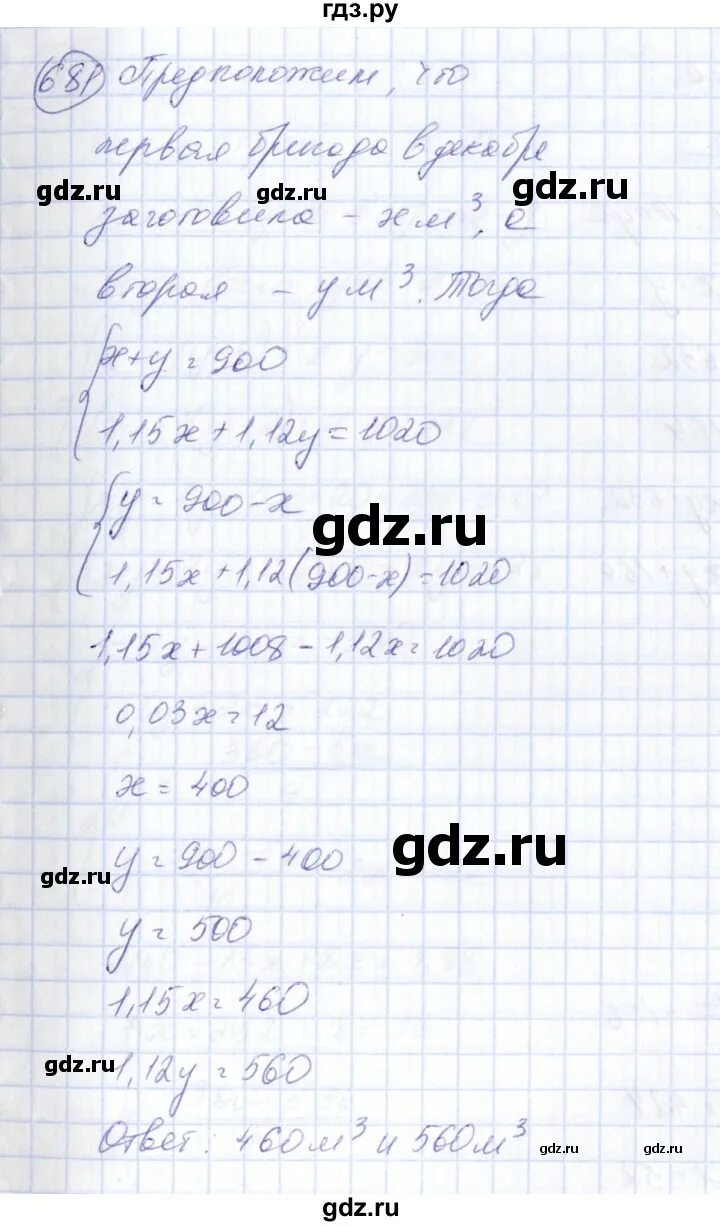 гдз.ру
681 Предположим, что
первая бригада в декабре
gdz.ru gdz.ru gdz.ru
заготовила - х м³, а
вторая - у м³. Тогда
{ x+y=900
1,15x+1,12y=1020
{ y=900-x
gdz.ru
1,15x+1,12(900-x)=1020
1,15x+1008-1,12x=1020
0,03x=12
x=400
gdz.ru
y=900-400
gdz.ru
y=500
1,15x=460
gdz.ru
1,12y=560
Ответ: 460м³ и 560м³
gdz.ru gdz.ru
gdz.ru